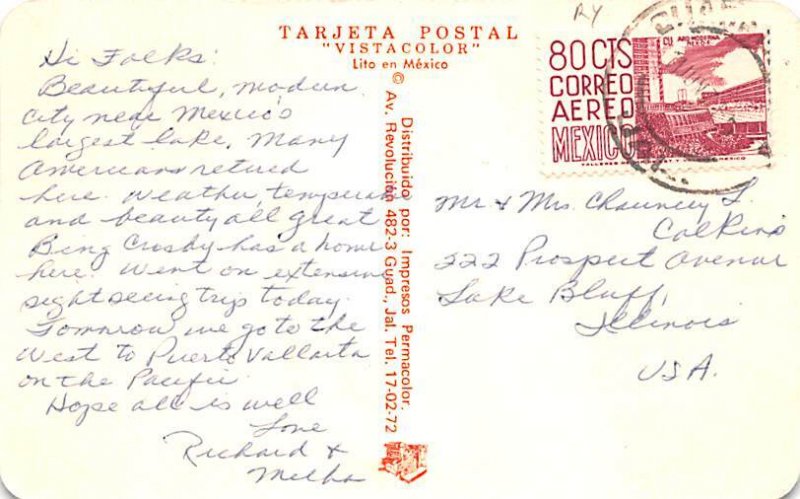 RY
TARJETA POSTAL
"VISTACOLOR"
Lito en México
© Av. Revolución 482-3 Guad., Jal. Tel. 17-02-72
Distribuido por: Impresos Permacolor.
Hi Folks:
Beautiful, modern
city near Mexico's
largest lake. Many
Americans retired
here. Weather, temperature
and beauty all great
Bing Crosby has a home
here. Went on extensive
sight seeing trip today.
Tomorrow we go to the
West to Puerto Vallarta
on the Pacific
Hope all is well
Love
Richard &
Melba
80 CTS
CORREO
AEREO
MEXICO
CU ARQ MODERNA
Mr & Mrs. Chauncey L.
Calkins
222 Prospect Avenue
Lake Bluff,
Illinois
USA.